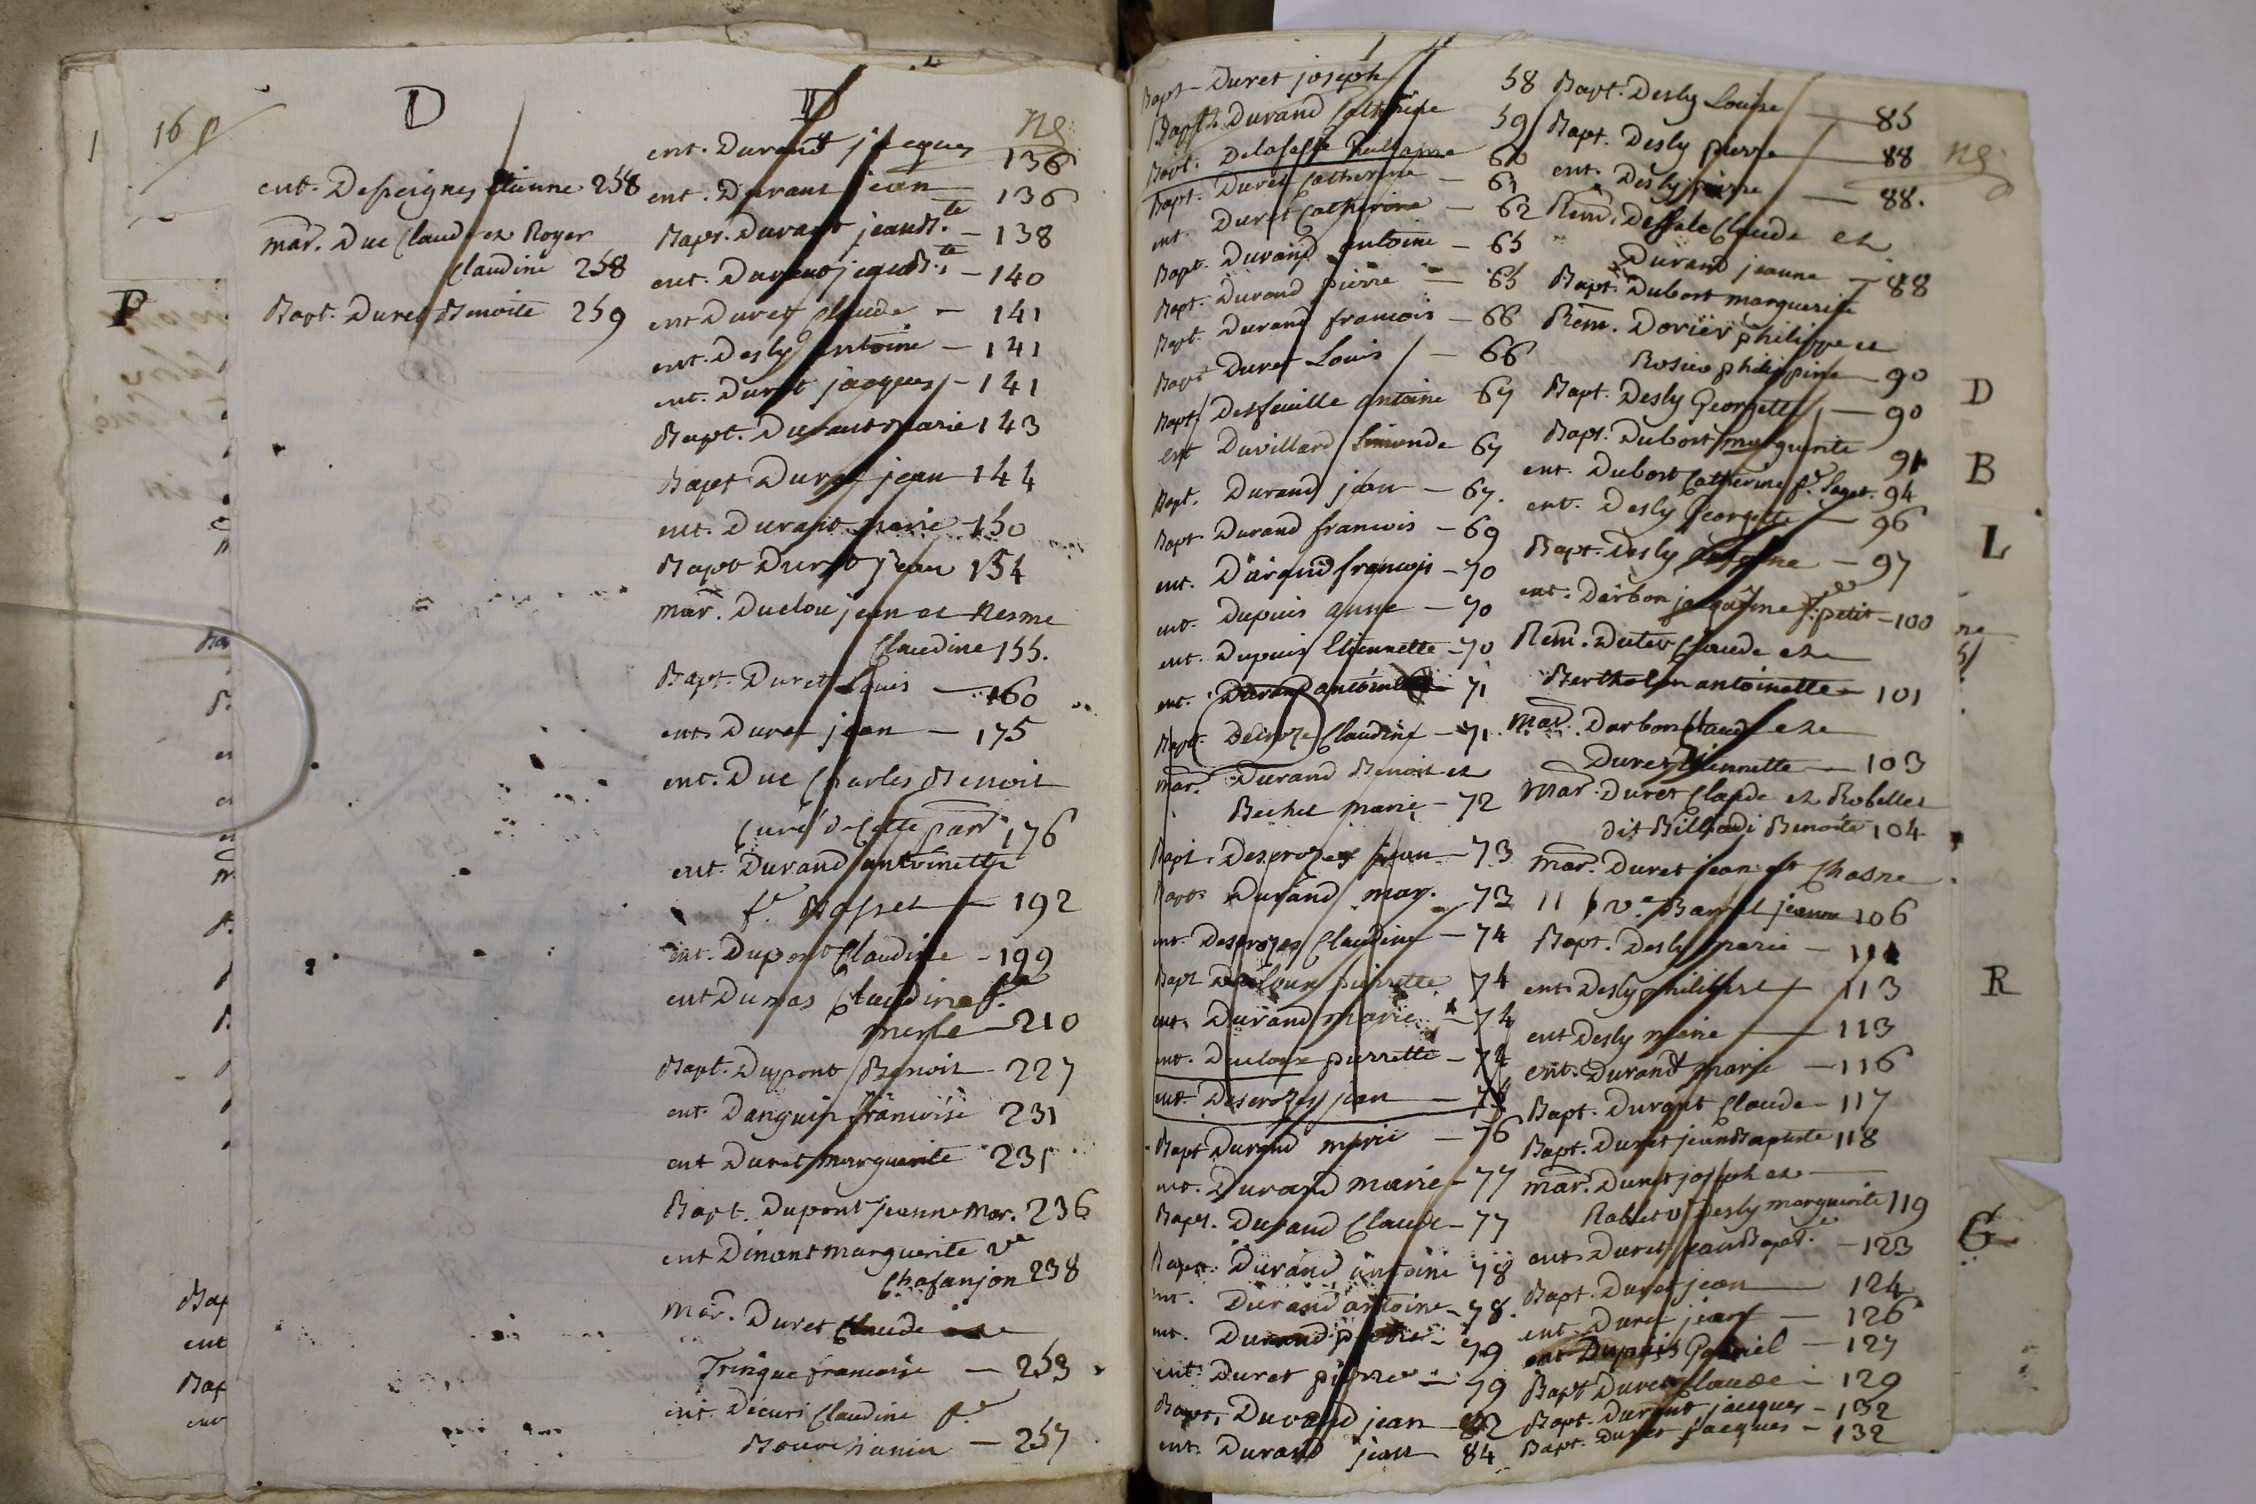 D
16
ent. Despeignes Etienne 258
mar. Duc Claude et Royer
Claudine 258
Bapt. Duret Benoite 259
P
D
ng
ent. Durand jacques 136
ent. Durant jean 136
Bapt. Durant jean B.te 138
ent. Durant jean B.te 140
ent Duret Claude 141
ent. Desly antoine 141
ent. Duret jacques 141
Bapt. Durant marie 143
Bapt Duret jean 144
ent. Durant marie 150
Bapt Duret jean 154
mar. Duclou jean et Nesme
Claudine 155.
Bapt. Duret Louis 160
ent. Duret jean 175
ent. Duc Charles Benoit
Curé de Cette par 176
ent. Durand antoinette
f.e 192
ent. Dupont Claudine 199
ent Dumas Claudine f.e
merle 210
Bapt. Dupont Benoit 227
ent. Danguin francoise 231
ent Duret marguerite 235
Bapt. Dupont jeanne mar. 236
ent Dinant marguerite v.e
Chafanjon 238
mar. Duret Claude et
Trinque francoise 253
ent. Decuri Claudine f.e
257
Bapt Duret joseph 58
Bapt. Durand Catherine 59
Bapt. 60
Bapt. Duret Catherine 61
ent. Duret Catherine 62
Bapt. Durand antoine 65
Bapt. Durand pierre 65
Bapt. Durand francois 66
Bapt Duret Louis 66
Bapt Desfeuille antoine 67
ent Duvillard Simonde 67
Bapt. Durand jean 67.
Bapt. Durand francois 69
ent. Durand francois 70
ent. Dupuis anne 70
ent. Dupuis Etiennette 70
ent. Durand 71
Bapt. Decroze Claudine 71.
mar. Durand Benoit et
Bechet marie 72
Bapt. Descrozes jean 73
Bapt. Durand mar. 73
ent. Descrozes Claudine 74
Bapt pierrette 74
ent. Durand marie 74
ent. Ducloux pierrette 74
ent. Descrozes jean
Bapt Durand marie 76
ent. Durand marie 77
Bapt. Durand Claude 77
Bapt. Durand antoine 78
ent. Durand antoine 78.
ent. Durand 79
ent. Duret pierre 79
Bapt. Durand jean 82
ent. Durand jean 84
Bapt. Desly Louise 85
Bapt. Desly pierre 88
ng
ent. Desly pierre 88.
Rem. Claude et
Durand jeanne 88
Bapt. Dubost marguerite
Rem. Dorier philippe et
philippine 90
Bapt. Desly Georgette 90
Bapt. Dubost marguerite 91
ent. Dubost Catherine f.e 94
ent. Desly Georgette 96
Bapt. Desly 97
ent. Darbon jaquéline f.e petit 100
Rem. Claude et
Bertholon antoinette 101
mar. Darbon Claude et
Duret Etiennette 103
mar. Duret Claude et Robellet
dit Billiodi Benoite 104
mar. Duret jean et Chasne
v.e 106
Bapt. Desly marie
ent. Desly philibert 113
ent Desly marie 113
ent. Durand marie 116
Bapt. Durant Claude 117
Bapt. Duret jean Baptiste 118
mar. Duret joseph et
Desly marguerite 119
ent. Duret jean Bapt.e 123
Bapt. Duret jean 124
ent. Duret jean 126
ent Dupuis Gabriel 127
Bapt Duret Claude 129
Bapt. Durant jacques 132
Bapt. Duret jacques 132
D
B
L
R
G